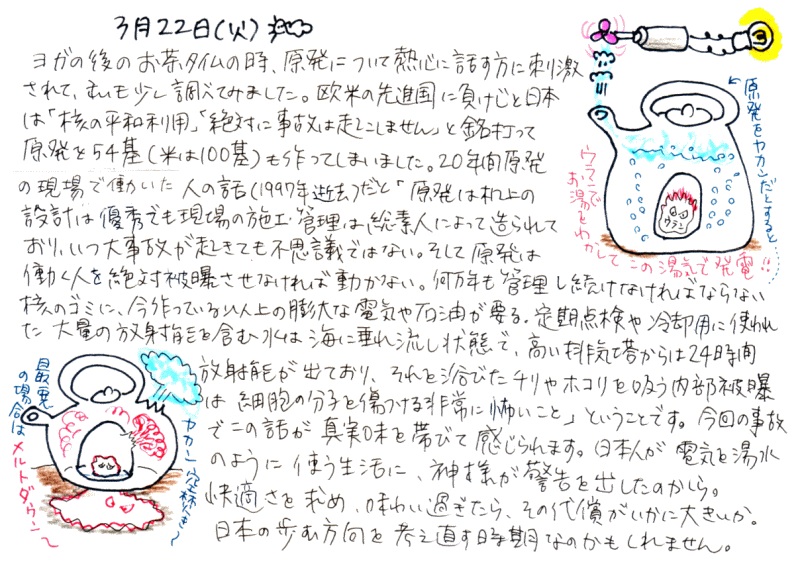 3月22日(火)
ヨガの後のお茶タイムの時、原発について熱心に話す方に刺激
されて、私も少し調べてみました。欧米の先進国に負けじと日本
は「核の平和利用」「絶対に事故は起こしません」と銘打って
原発を54基(米は100基)も作ってしまいました。20年間原発
の現場で働いた人の話(1997年逝去)だと「原発は机上の
設計は優秀でも現場の施工・管理は総素人によって造られて
おり、いつ大事故が起きても不思議ではない。そして原発は
働く人を絶対被曝させなければ動かない。何万年も管理し続けなければならない
核のゴミに、今作っている以上の膨大な電気や石油が要る。定期点検や冷却用に使われ
た大量の放射能を含む水は海に垂れ流し状態で、高い排気塔からは24時間
放射能が出ており、それを浴びたチリやホコリを吸う内部被曝
は細胞の分子を傷つける非常に怖いこと」ということです。今回の事故
でこの話が真実味を帯びて感じられます。日本人が電気を湯水
のように使う生活に、神様が警告を出したのかしら。
快適さを求め、味わい過ぎたら、その代償がいかに大きいか。
日本の歩む方向を考え直す時期なのかもしれません。
原発をヤカンだとすると
ウランで
お湯をわかして
この湯気で発電!!
ウラン
最悪
の場合は
メルトダウン〜
ヤカン